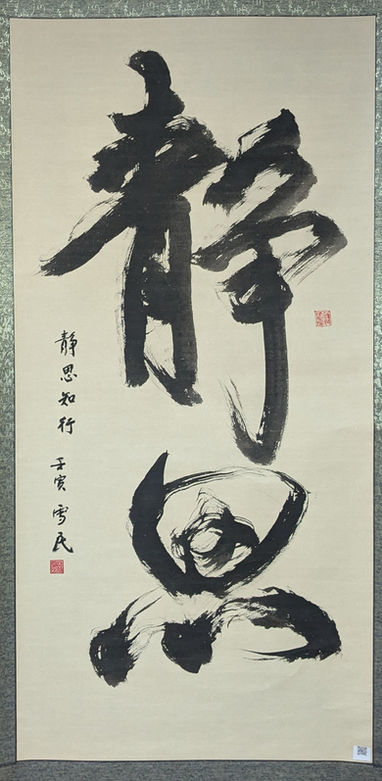 静思
静思知行
壬寅 雪民